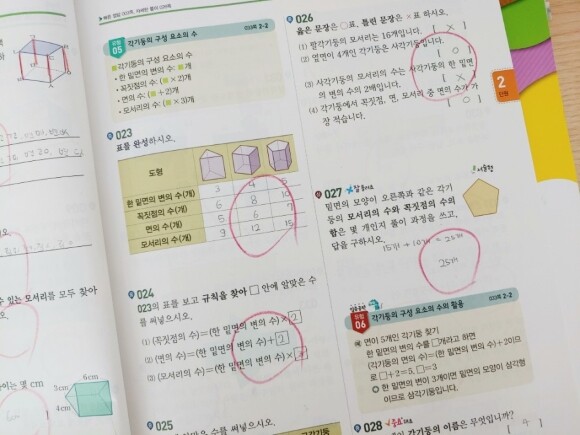 유형 05 각기둥의 구성 요소의 수 033쪽 2-2
■각기둥의 구성 요소의 수
• 한 밑면의 변의 수: ■개
• 꼭짓점의 수: (■×2)개
• 면의 수: (■+2)개
• 모서리의 수: (■×3)개
023
표를 완성하시오.
도형
한 밑면의 변의 수(개) 3 4 5
꼭짓점의 수(개) 6 8 10
면의 수(개) 5 6 7
모서리의 수(개) 9 12 15
024
023의 표를 보고 규칙을 찾아 □ 안에 알맞은 수
를 써넣으시오.
(1) (꼭짓점의 수)=(한 밑면의 변의 수)×2
(2) (면의 수)=(한 밑면의 변의 수)+2
(3) (모서리의 수)=(한 밑면의 변의 수)×3
025
026
옳은 문장은 ○표, 틀린 문장은 ×표 하시오.
(1) 팔각기둥의 모서리는 16개입니다. [ X ]
(2) 옆면이 4개인 각기둥은 사각기둥입니다.
[ O ]
(3) 사각기둥의 모서리의 수는 사각기둥의 한 밑면
의 변의 수의 2배입니다. [ X ]
(4) 각기둥에서 꼭짓점, 면, 모서리 중 면의 수가 가
장 적습니다. [ O ]
2
단원
027 서술형
밑면의 모양이 오른쪽과 같은 각기
둥의 모서리의 수와 꼭짓점의 수의
합은 몇 개인지 풀이 과정을 쓰고,
답을 구하시오.
15개+10개=25개
25개
유형 06 각기둥의 구성 요소의 수의 활용 033쪽 2-2
면이 5개인 각기둥 찾기
한 밑면의 변의 수를 □개라고 하면
(각기둥의 면의 수)=(한 밑면의 변의 수)+2이므
로 □+2=5, □=3
한 밑면의 변이 3개이면 밑면의 모양이 삼각형
이므로 삼각기둥입니다.
028 중요
각기둥의 이름은 무엇입니까?
있는 모서리를 모두 찾아
몇 cm
6cm
3cm
4cm